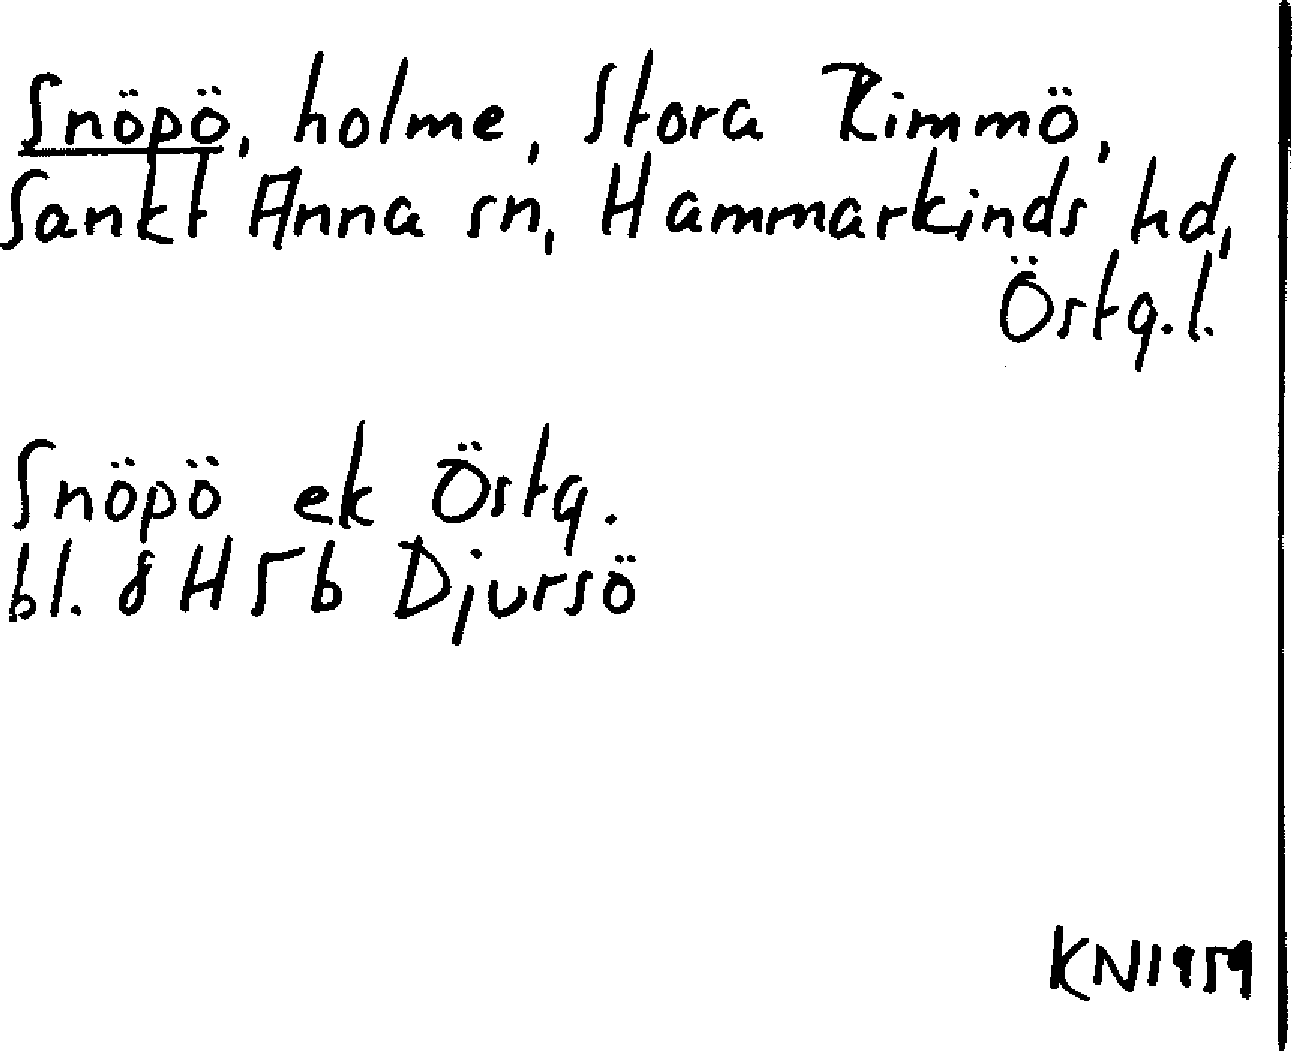 Snöpö, holme, Stora Rimmö,
Sankt Anna sn, Hammarkinds hd,
Östg.l.
Snöpö ek Östg.
bl. 8H5b Djursö
KN1959